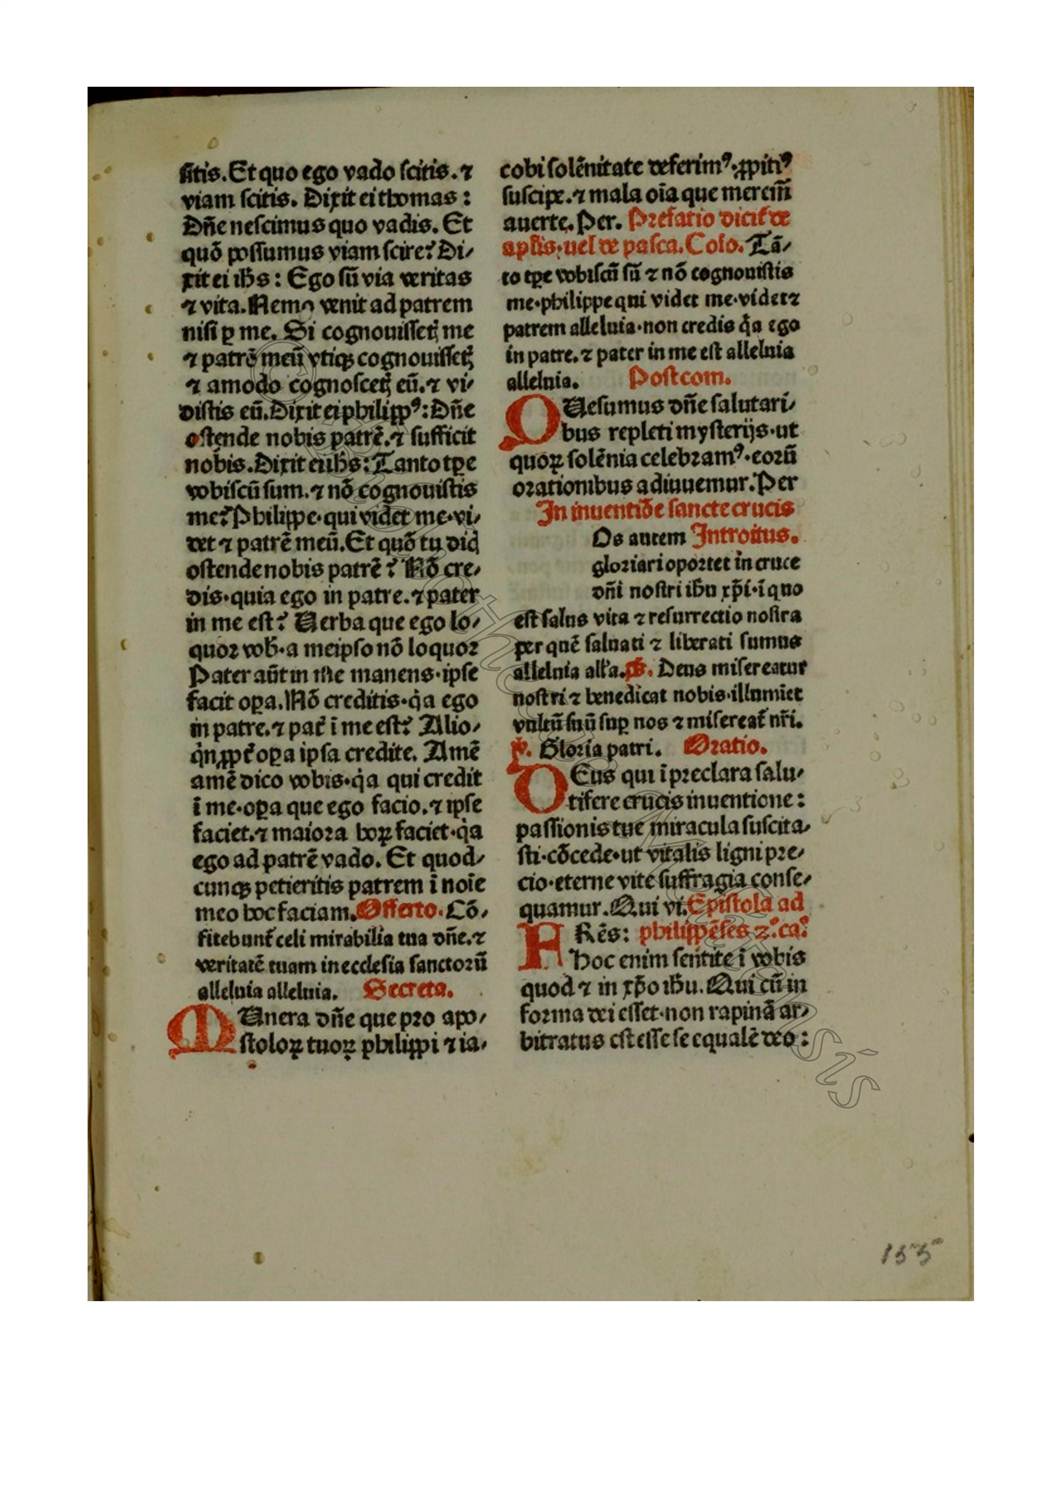 sitis. Et quo ego vado scitis. ⁊
viam scitis. Dixit ei thomas :
Dñe nescimus quo vadis. Et
quõ possumus viam scire? Di⸗
xit ei ihs̄ : Ego sũ via veritas
⁊ vita. Nemo venit ad patrem
nisi ꝑ me. Si cognouissetꝭ me
⁊ patrẽ meũ vtiqꝫ cognouissetꝭ
⁊ amodo cognoscetꝭ eũ. ⁊ vi⸗
distis eũ. Dixit ei philippꝰ: Dñe
ostende nobis patrẽ. ⁊ sufficit
nobis. Dixit eiihs̄: Tanto tꝑe
vobiscũ sum. ⁊ nõ cognouistis
me? Philippe· qui videt me· vi⸗
det ⁊ patrẽ meũ. Et quõ tu dicꝭ
ostende nobis patrẽ ? Nõ cre⸗
dis· quia ego in patre. ⁊ pater
in me est? Verba que ego lo⸗
quor vob̃· a meipso nõ loquor
Pater aũt in me manens· ipse
facit oꝑa. Nõ creditis· q̇a ego
in patre. ⁊ pat̃ ĩ me est? Alio⸗
q̇n ꝓpt̃ oꝑa ipsa credite. Amẽ
amẽ dico vobis· q̇a qui credit
ĩ me· oꝑa que ego facio. ⁊ ipse
faciet. ⁊ maiora hoꝝ faciet· q̇a
ego ad patrẽ vado. Et quod⸗
cunqꝫ petieritis patrem ĩ noĩe
meo hoc faciam. Offerto. Cõ⸗
fitebunt̃ celi mirabilia tua dñe. ⁊
veritatẽ tuam in ecclesia sanctorũ
alleluia alleluia. Secreta.
MUnera dñe que pro apo⸗
stoloꝝ tuoꝝ philippi ⁊ ia⸗
cobi solẽnitate deferimꝰ· ꝓpitiꝰ
suscipe. ⁊ mala oĩa que meremr̃
auerte. Per. Prefatio dicit̃ de
apl̃is· uel de pasca. Coĩo. Tã⸗
to tꝑe vobiscũ sũ ⁊ nõ cognouistis
me· philippe qui videt me· videt ⁊
patrem alleluia· non credis q̇a ego
in patre. ⁊ pater in me est alleluia
alleluia. Postcom.
QUesumus dñe salutari⸗
bus repleti mysterijs· ut
quoꝝ solẽnia celebramꝰ· eorũ
orationibus adiuuemur. Per
In inuentiõe sancte crucis
Os autem Introitus.
gloriari oportet in cruce
dñi nostri ihũ xp̃i· ĩ quo
est salus vita ⁊ resurrectio nostra
per quẽ saluati ⁊ liberati sumus
alleluia all'a. ps̃. Deus misereatur
nostri ⁊ benedicat nobis· illumiet
vultũ suũ suꝑ nos ⁊ misereat̃ nr̃i.
℣. Gloria patri. Oratio.
DEus qui ĩ preclara salu⸗
tifere crucis inuentione :
passionis tue miracula suscita⸗
sti· cõcede· ut vitalis ligni pre⸗
cio· eterne vite suffragia conse⸗
quamur. Qui vi. Epistola ad
FRẽs: philippẽses 2.º ca.º
Hoc enim sentite ĩ vobis
quod ⁊ in xp̃o ihũ. Qui cũ in
forma dei esset· non rapinã ar⸗
bitratus est esse se equalẽ deo :
155